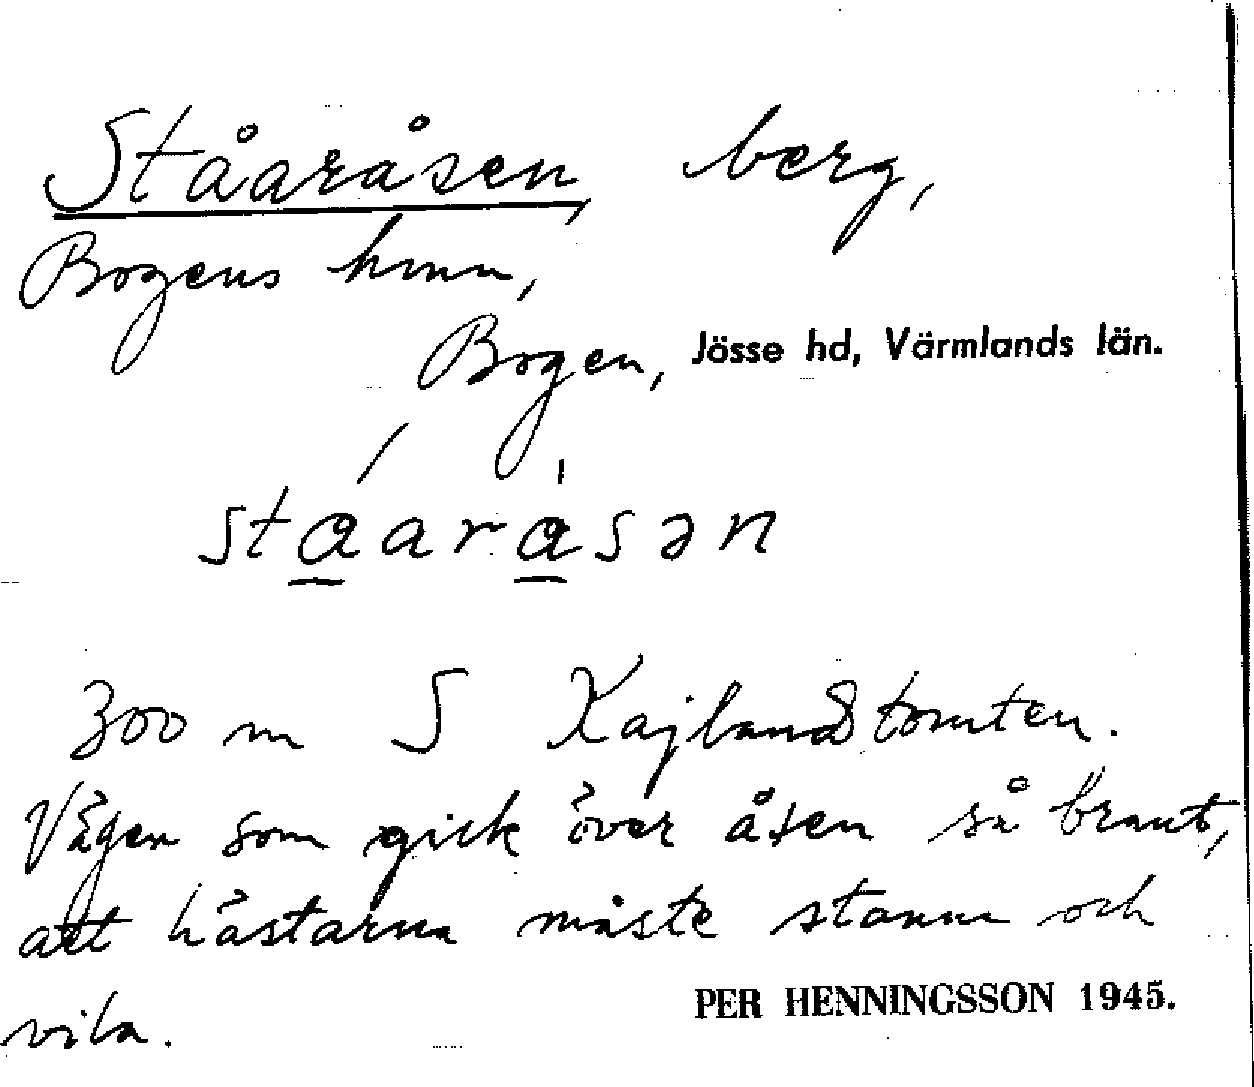 Ståaråsen, berg,
Bogens hmn,
Bogen, Jösse hd, Värmlands län.
stáaråsən
300 m S Kajlandstomten.
Vägen som gick över åsen så brant,
att hästarna måste stanna och
vila.
PER HENNINGSSON 1945.